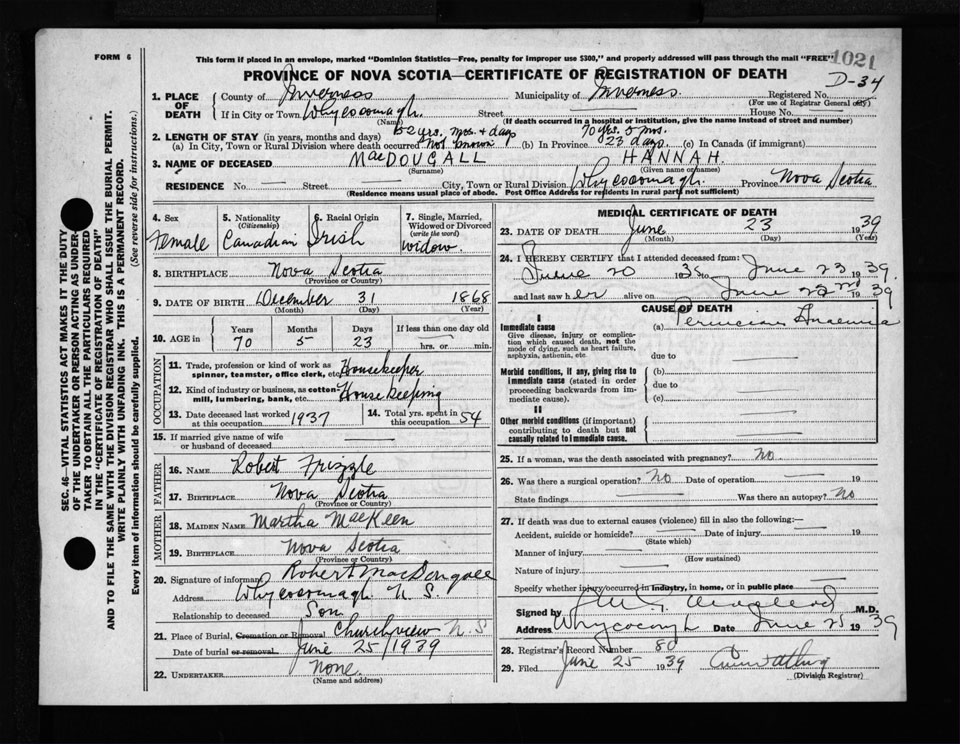 FORM 6
This form if placed in an envelope, marked "Dominion Statistics—Free, penalty for improper use $300," and properly addressed will pass through the mail "FREE"
1021
PROVINCE OF NOVA SCOTIA—CERTIFICATE OF REGISTRATION OF DEATH
D-34
1. PLACE OF DEATH
County of Inverness Municipality of Inverness Registered No.
(For use of Registrar General only)
If in City or Town Whycocomagh Street House No.
(Name) (If death occurred in a hospital or institution, give the name instead of street and number)
2. LENGTH OF STAY (in years, months and days) 52 yrs. mos. + days 70 yrs. 5 mos.
(a) In City, Town or Rural Division where death occurred not known (b) In Province 23 days. (c) In Canada (if immigrant)
3. NAME OF DECEASED MacDOUGALL HANNAH.
(Surname) (Given name or names)
RESIDENCE No. Street City, Town or Rural Division Whycocomagh. Province Nova Scotia
(Residence means usual place of abode. Post Office Address for residents in rural parts not sufficient)
SEC. 46—VITAL STATISTICS ACT MAKES IT THE DUTY
OF THE UNDERTAKER OR PERSON ACTING AS UNDER-
TAKER TO OBTAIN ALL THE PARTICULARS REQUIRED
IN THE "CERTIFICATE OF REGISTRATION OF DEATH"
AND TO FILE THE SAME WITH THE DIVISION REGISTRAR WHO SHALL ISSUE THE BURIAL PERMIT.
WRITE PLAINLY WITH UNFADING INK. THIS IS A PERMANENT RECORD.
Every item of information should be carefully supplied. (See reverse side for instructions.)
4. Sex
Female
5. Nationality
(Citizenship)
Canadian
6. Racial Origin
Irish
7. Single, Married,
Widowed or Divorced
(write the word)
widow.
8. BIRTHPLACE Nova Scotia
(Province or Country)
9. DATE OF BIRTH December 31 1868
(Month) (Day) (Year)
10. AGE in
Years Months Days If less than one day old
70 5 23 hrs. or min.
OCCUPATION
11. Trade, profession or kind of work as
spinner, teamster, office clerk, etc. Housekeeper
12. Kind of industry or business, as cotton-
mill, lumbering, bank, etc. House keeping
13. Date deceased last worked
at this occupation 1937
14. Total yrs. spent in
this occupation 54
15. If married give name of wife
or husband of deceased
FATHER
16. NAME Robert Frizzle
17. BIRTHPLACE Nova Scotia
(Province or Country)
MOTHER
18. MAIDEN NAME Martha MacKeen
19. BIRTHPLACE Nova Scotia
(Province or Country)
20. Signature of informant Robert MacDougall
Address Whycocomagh N.S.
Relationship to deceased Son
21. Place of Burial, Cremation or Removal Churchview N.S
Date of burial or removal. June 25/1939
22. UNDERTAKER None.
(Name and address)
MEDICAL CERTIFICATE OF DEATH
23. DATE OF DEATH June 23 1939
(Month) (Day) (Year)
24. I HEREBY CERTIFY that I attended deceased from:
June 20 1939 to June 23 1939.
and last saw her alive on June 22nd 1939
CAUSE OF DEATH
I
Immediate cause
Give disease, injury or complication
which caused death, not the
mode of dying, such as heart failure,
asphyxia, asthenia, etc.
(a) Pernicious Anaemia
due to
Morbid conditions, if any, giving rise to
immediate cause (stated in order
proceeding backwards from immediate
cause).
(b)
due to
(c)
II
Other morbid conditions (if important)
contributing to death but not
causally related to immediate cause.
25. If a woman, was the death associated with pregnancy? No
26. Was there a surgical operation? No Date of operation 19
State findings Was there an autopsy? No
27. If death was due to external causes (violence) fill in also the following:—
Accident, suicide or homicide? Date of injury 19
(State which)
Manner of injury
(How sustained)
Nature of injury
Specify whether injury occurred in industry, in home, or in public place
Signed by M.D.
Address Whycocomagh Date June 25 1939
28. Registrar's Record Number 80
29. Filed June 25 1939
(Division Registrar)